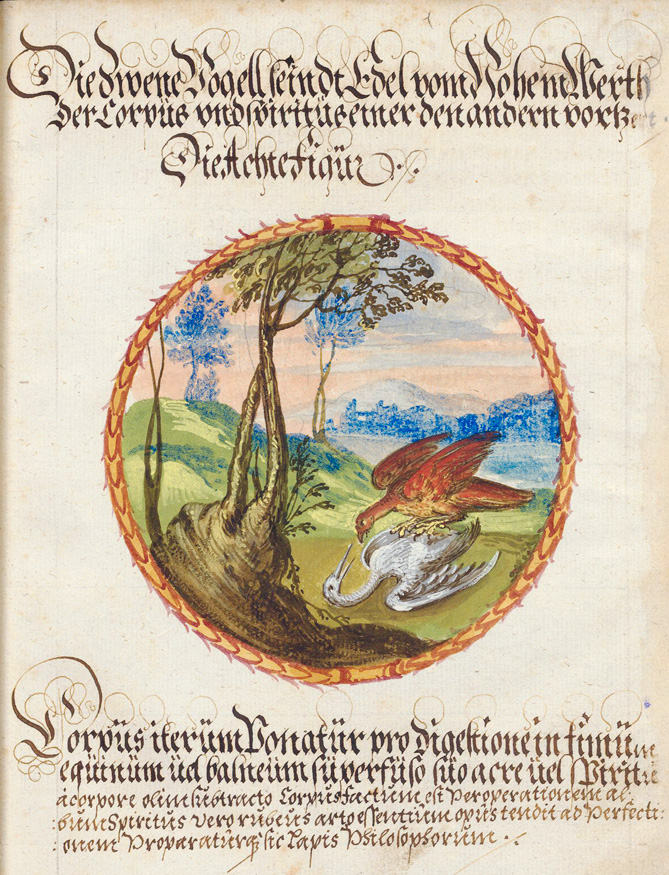 Die Zwene Vogell seindt Edel vom Hohem Werth
Der Corpüs vnd spiritüs einer den andern vortzert.
Die Achte Figür
Corpüs iterüm Ponatür pro digestione in fimüm
eqüinüm üel balneüm süperfüso süo aere üel spiritü
à corpore olim subtracto Corpus factum est Per operationem al:
:bum Spiritus vero rubeus arto essentium opus tendit ad Perfecti:
:onem Præparaturq; sic Lapis Philosophorum.